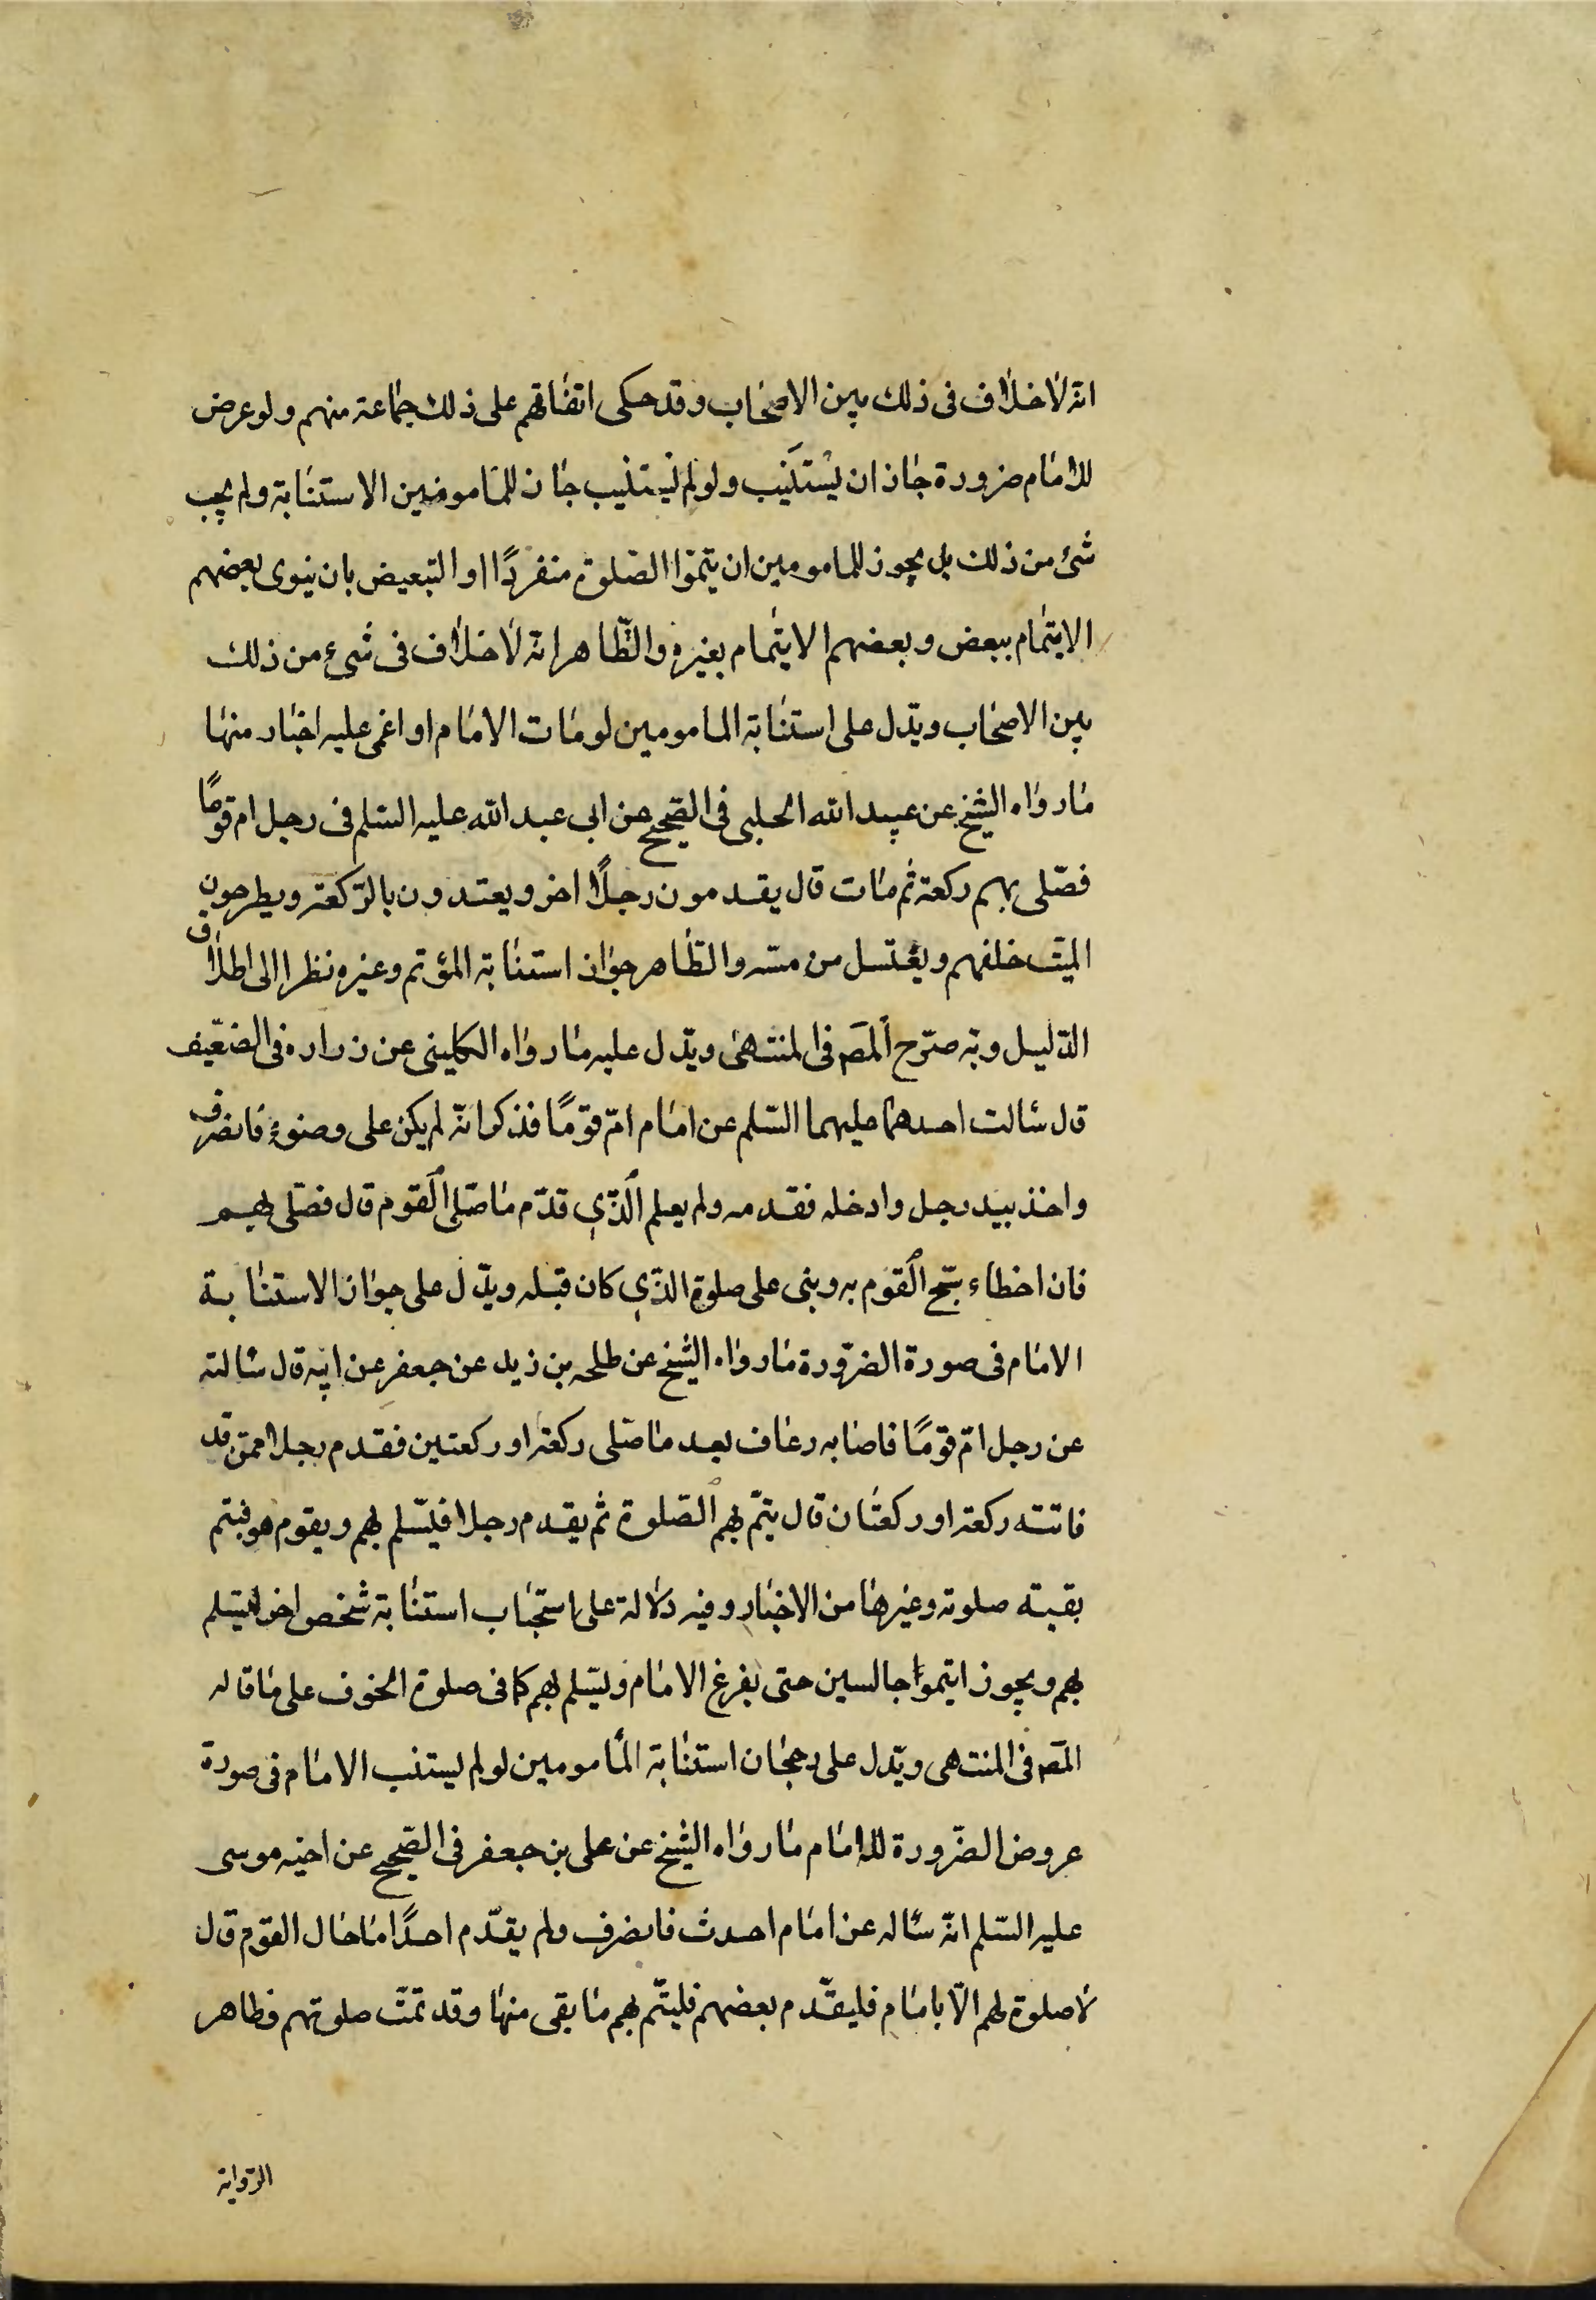 انه لا خلاف فى ذلك بين الاصحاب وقد حكى اتفاقهم على ذلك جماعة منهم ولو عرض
للامام ضرورة جاز ان يستنيب ولو لم يستنيب جاز للمامومين الاستنابة ولم يجب
شئ من ذلك بل يجوز للمامومين ان يتموا الصلوة منفردًا او التبعيض بان ينوى بعضهم
الايتمام ببعض وبعضهم الايتمام بغيره والظّاهر انه لا خلاف فى شىء من ذلك
بين الاصحاب ويدّل على استنابة المامومين لو مات الامام او اغمى عليه اخبار منها
ما رواه الشيخ عن عبيد الله الحلبى فى الصحيح عن ابى عبد الله عليه السّلم فى رجل ام قومًا
فصّلى بهم ركعة ثم مات قال يقدمون رجلًا اخر ويعتدون بالرّكعة ويطرحون
الميّت خلفهم ويغتسل من مسّه والظاهر جواز استنابة المؤتم وغيره نظرا الى اطلاق
الدّليل وبه صرّح المصَ فى المنتهى ويدّل عليه ما رواه الكلينى عن زراره فى الضعّيف
قال سالت احدهما عليهما السّلم عن امام امّ قومًا فذكر انّه لم يكن على وضوءٍ فانصرف
واخذ بيد رجل وادخله فقدمه ولم يعلم الّذي قدّم ما صّلى القوم قال فصّلى بهم
فان اخطاء سبّح القوم به وبنى على صلوة الذّي كان قبله ويدّل على جواز الاستنابة
الامام فى صورة الضرّورة ما رواه الشيخ عن طلحه بن زيد عن جعفر عن ابيه قال سالته
عن رجل امّ قومًا فاصابه رعاف بعد ما صّلى ركعة او ركعتين فقدم رجلا ممن قد
فاتته ركعة او ركعتان قال يتمّ بهم الصّلوة ثم يقدم رجلا فيسّلم بهم ويقوم هو فيتم
بقية صلوته وغيرها من الاخبار وفيه دلالة على استحباب استنابة شخص اخر ليسّلم
بهم ويجوز ايتموا جالسين حتى يفرغ الامام وليسّلم بهم كما فى صلوة الخوف على ما قاله
المصَ فى المنتهى ويدّل على رجحان استنابة المأمومين لو لم يستنب الامام فى صورة
عروض الضرّورة للامام ما رواه الشيخ عن على بن جعفر فى الصّحيح عن اخيه موسى
عليه السّلم انّه سأله عن امام احدث فانصرف ولم يقدّم احدًا ما حال القوم قال
لا صلوة لهم الّا بامام فليقدّم بعضهم فليتّم بهم ما بقى منها وقد تمّت صلوتهم فظاهر
الرّواية